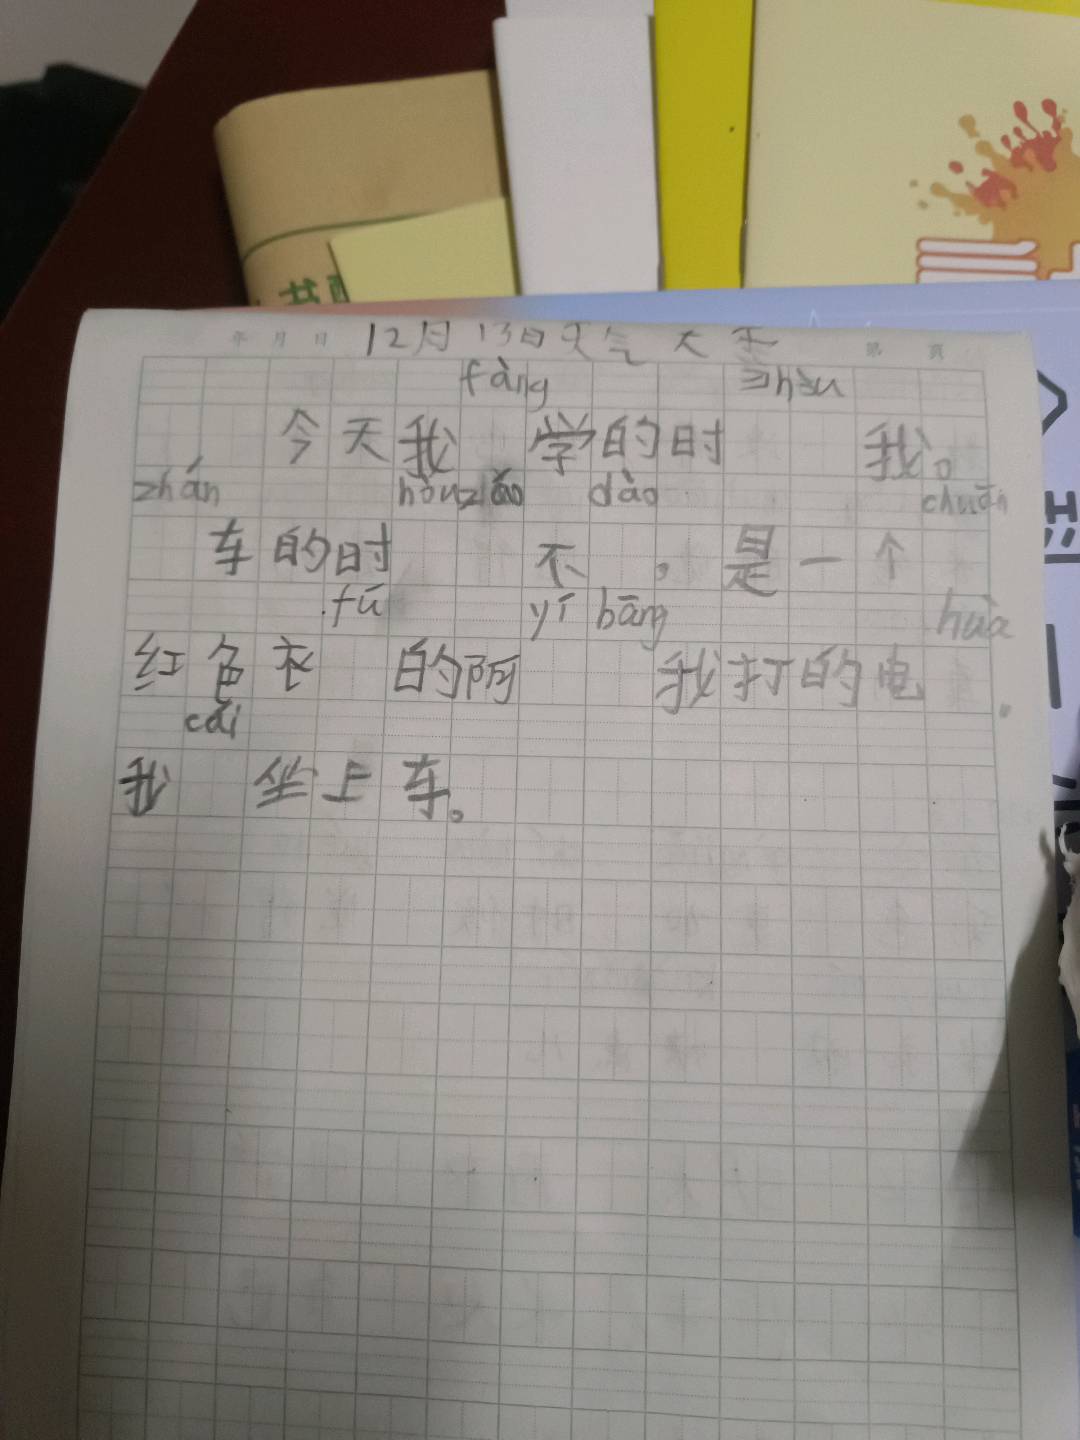 年 月 日 12月13日天气大 第 页
fàng hòu
今天我 学的时 我。
zhán hòu zhǎo dào chuān
车的时 不 , 是一个
fú yí bāng huà
红色衣 的阿 我打的电
cái
我 坐上车。